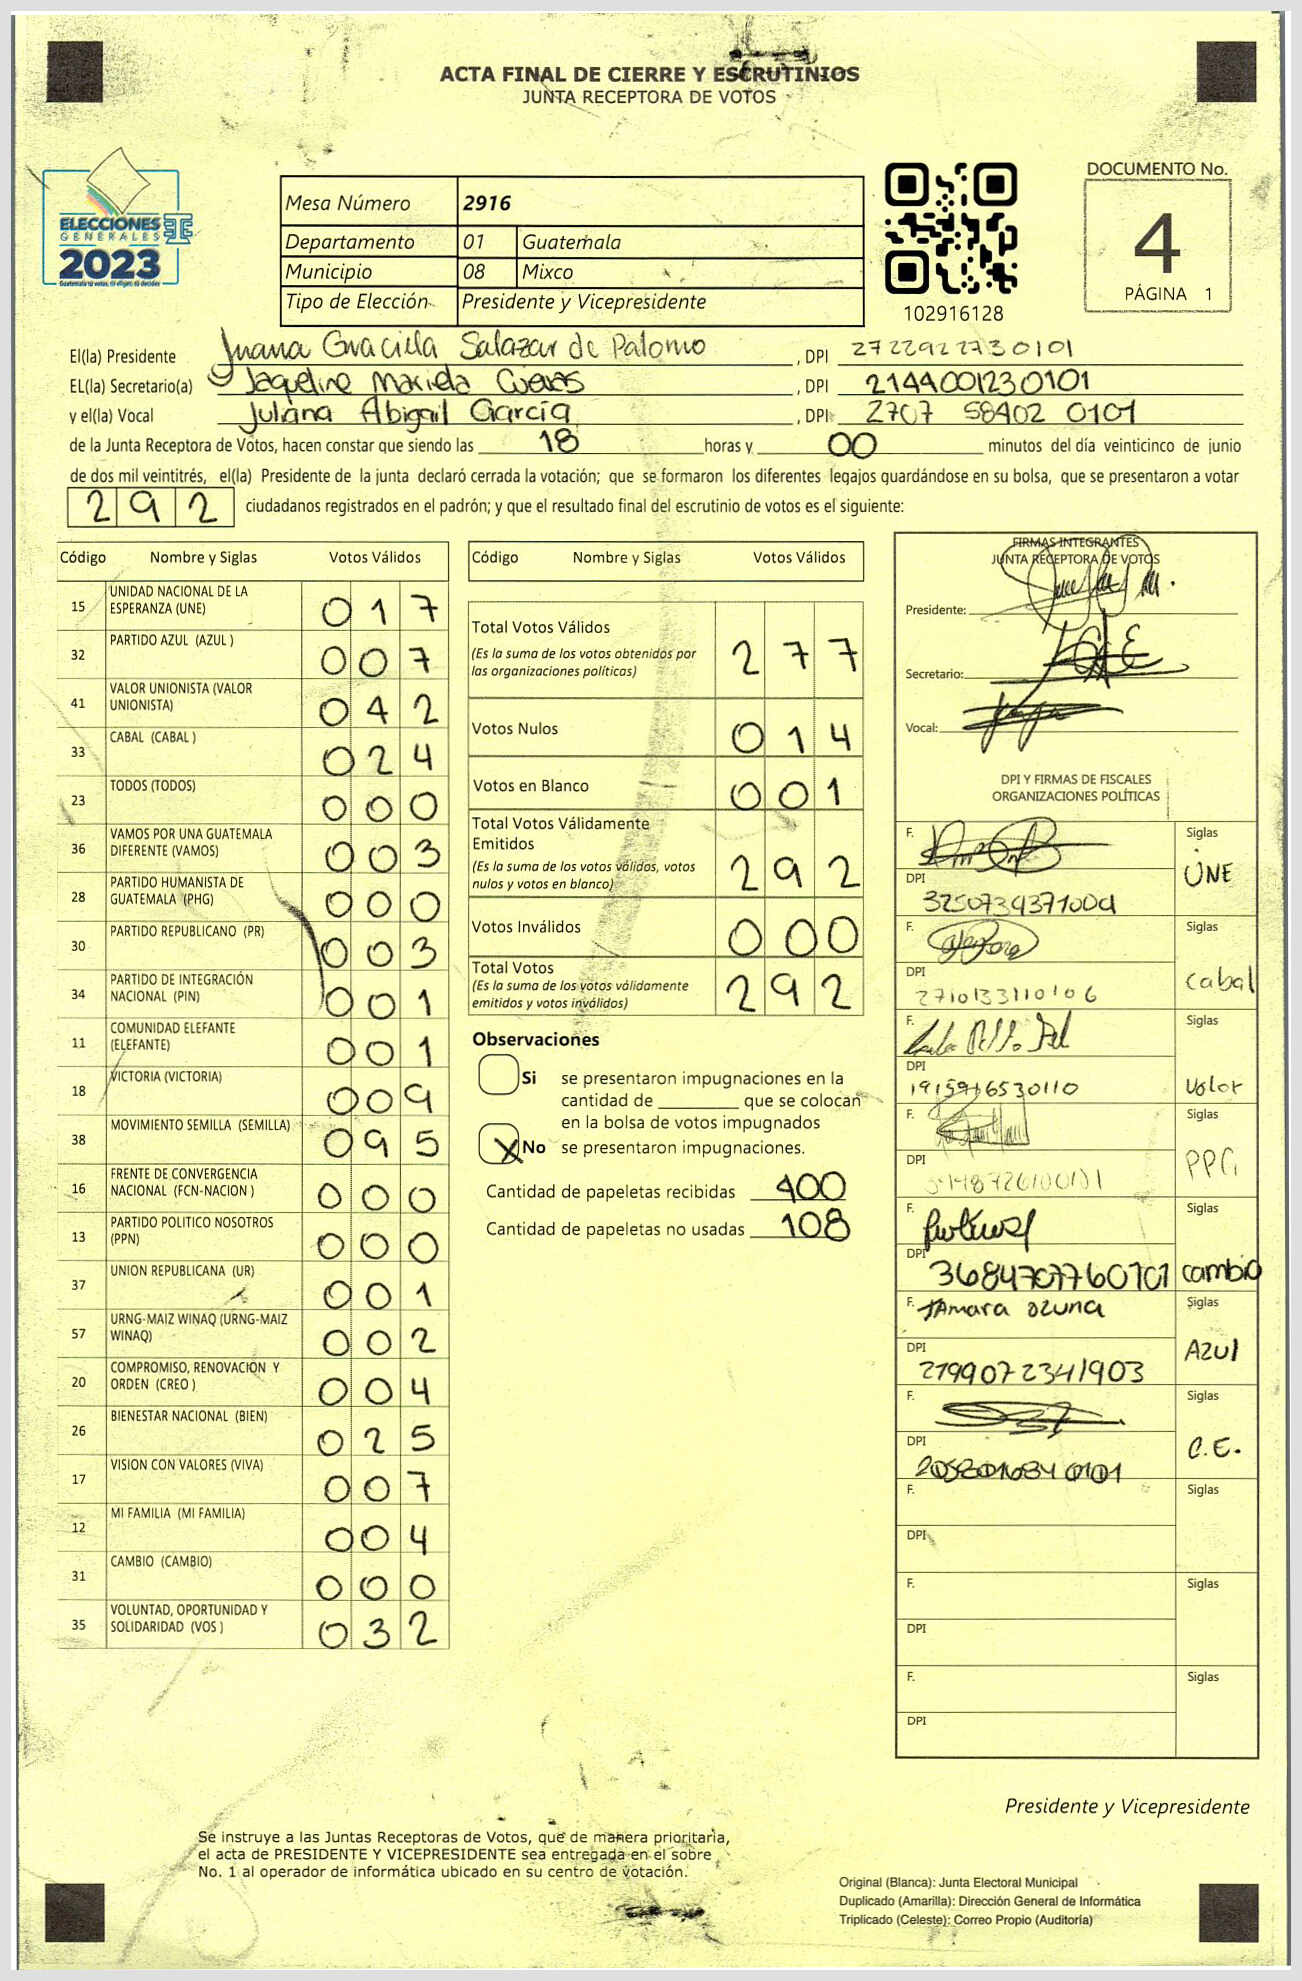 ACTA FINAL DE CIERRE Y ESCRUTINIOS
JUNTA RECEPTORA DE VOTOS
ELECCIONES
GENERALES
2023
Guatemala tú votas, tú eliges, tú decides
Mesa Número 2916
Departamento 01 Guatemala
Municipio 08 Mixco
Tipo de Elección Presidente y Vicepresidente
102916128
DOCUMENTO No.
4
PÁGINA 1
El(la) Presidente Juana Gracilla Salazar de Palomo, DPI 2722922730101
EL(la) Secretario(a) Jaqueline Mariela Cuevas, DPI 2144001230101
y el(la) Vocal Juliana Abigail García, DPI 2707 58402 0101
de la Junta Receptora de Votos, hacen constar que siendo las 18 horas y 00 minutos del día veinticinco de junio
de dos mil veintitrés, el(la) Presidente de la junta declaró cerrada la votación; que se formaron los diferentes legajos guardándose en su bolsa, que se presentaron a votar
292 ciudadanos registrados en el padrón; y que el resultado final del escrutinio de votos es el siguiente:
Código Nombre y Siglas Votos Válidos
15 UNIDAD NACIONAL DE LA ESPERANZA (UNE) 017
32 PARTIDO AZUL (AZUL ) 007
41 VALOR UNIONISTA (VALOR UNIONISTA) 042
33 CABAL (CABAL ) 024
23 TODOS (TODOS) 000
36 VAMOS POR UNA GUATEMALA DIFERENTE (VAMOS) 003
28 PARTIDO HUMANISTA DE GUATEMALA (PHG) 000
30 PARTIDO REPUBLICANO (PR) 003
34 PARTIDO DE INTEGRACIÓN NACIONAL (PIN) 001
11 COMUNIDAD ELEFANTE (ELEFANTE) 001
18 VICTORIA (VICTORIA) 009
38 MOVIMIENTO SEMILLA (SEMILLA) 095
16 FRENTE DE CONVERGENCIA NACIONAL (FCN-NACION ) 000
13 PARTIDO POLITICO NOSOTROS (PPN) 000
37 UNION REPUBLICANA (UR) 001
57 URNG-MAIZ WINAQ (URNG-MAIZ WINAQ) 002
20 COMPROMISO, RENOVACION Y ORDEN (CREO ) 004
26 BIENESTAR NACIONAL (BIEN) 025
17 VISION CON VALORES (VIVA) 007
12 MI FAMILIA (MI FAMILIA) 004
31 CAMBIO (CAMBIO) 000
35 VOLUNTAD, OPORTUNIDAD Y SOLIDARIDAD (VOS ) 032
Código Nombre y Siglas Votos Válidos
Total Votos Válidos 277
(Es la suma de los votos obtenidos por
las organizaciones políticas)
Votos Nulos 014
Votos en Blanco 001
Total Votos Válidamente
Emitidos 292
(Es la suma de los votos válidos, votos
nulos y votos en blanco)
Votos Inválidos 000
Total Votos 292
(Es la suma de los votos válidamente
emitidos y votos inválidos)
Observaciones
Si se presentaron impugnaciones en la
cantidad de ________ que se colocan
en la bolsa de votos impugnados
X No se presentaron impugnaciones.
Cantidad de papeletas recibidas 400
Cantidad de papeletas no usadas 108
FIRMAS INTEGRANTES
JUNTA RECEPTORA DE VOTOS
Presidente:
Secretario:
Vocal:
DPI Y FIRMAS DE FISCALES
ORGANIZACIONES POLÍTICAS
F. Siglas UNE
DPI 3250734371004
F. Siglas Cabal
DPI 2710133110106
F. Siglas Valor
DPI 1915916530110
F. Siglas PPG
DPI
F. Siglas cambio
DPI 3684707760101
F. TAmara Ozuna Siglas AZUl
DPI 2199072341903
F. Siglas C.E.
DPI
F. Siglas
DPI
F. Siglas
DPI
F. Siglas
DPI
Presidente y Vicepresidente
Se instruye a las Juntas Receptoras de Votos, que de manera prioritaria,
el acta de PRESIDENTE Y VICEPRESIDENTE sea entregada en el sobre
No. 1 al operador de informática ubicado en su centro de votación.
Original (Blanca): Junta Electoral Municipal
Duplicado (Amarilla): Dirección General de Informática
Triplicado (Celeste): Correo Propio (Auditoría)